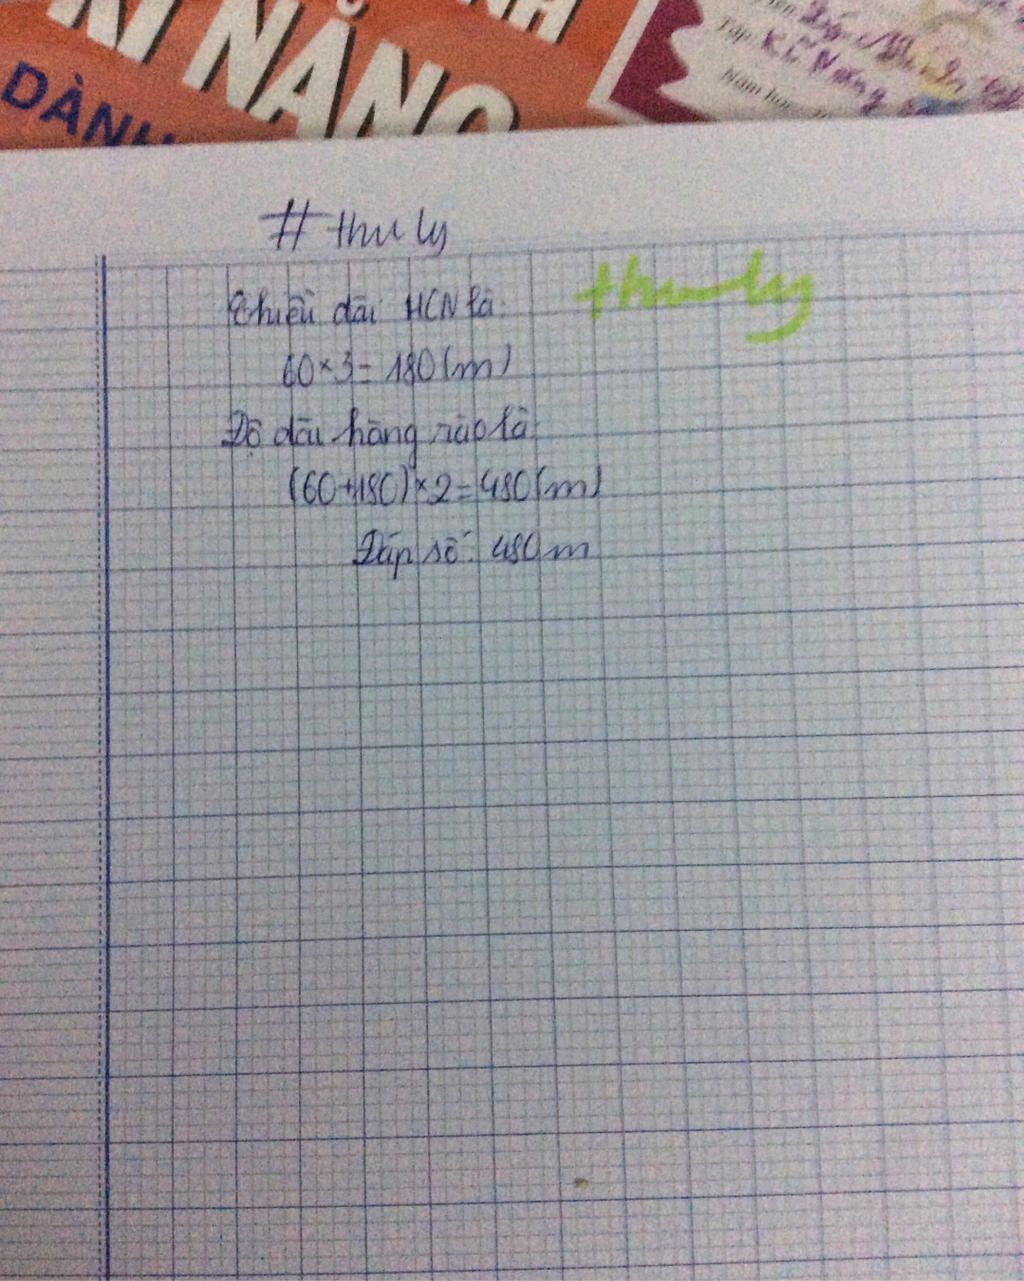 KĨ NĂNG
DÀNH
#thuly
thuly
Chiều dài HCN là:
60×3=180(m)
Độ dài hàng rào là:
(60+180)×2=480(m)
Đáp số: 480m